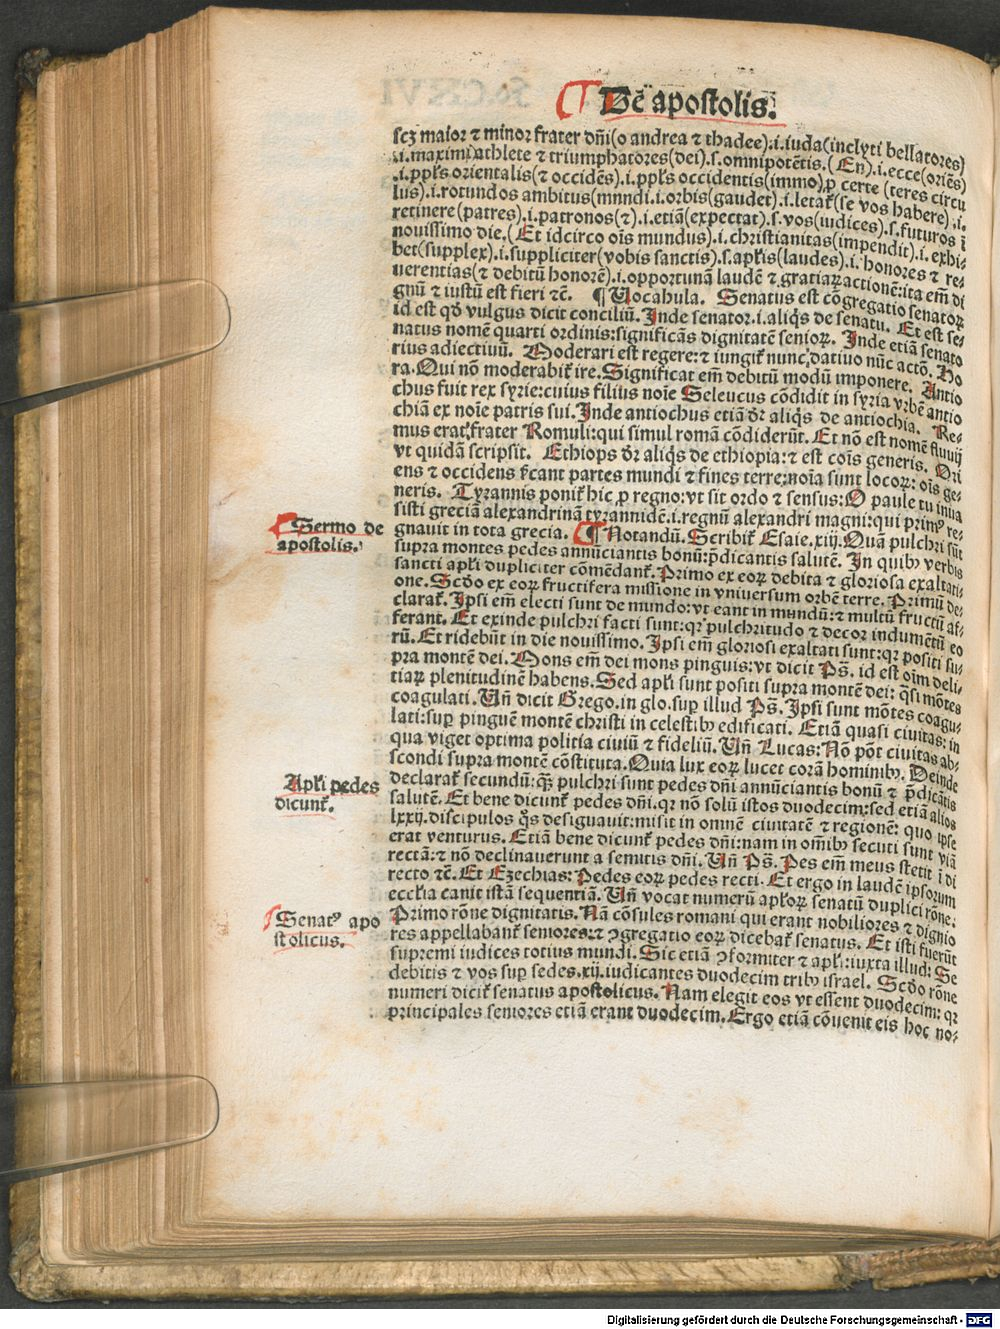 De apostolis.
scz maior ⁊ minor frater dñi(o andrea ⁊ thadee).i.iuda(inclyti bellatores)
.i.maximi athlete ⁊ triumphatores(dei).s.omnipotētis.(En).i.ecce(oriēs)
.i.ppl's orientalis(⁊ occidēs).i.ppl's occidentis(immo)ꝓ certe (teres circu
lus).i.rotundos ambitus(mundi.i.orbis(gaudet).i.letaꝶ(se vos habere).i.
retinere(patres).i.patronos(⁊).i.etiā(expectat).s.vos(iudices).s.futuros ī
nouissimo die.(Et idcirco oīs mundus).i.christianitas(impendit).i.exhi-
bet(supplex).i.suppliciter(vobis sanctis).s.aplis(laudes).i.honores ⁊ re-
uerentias(⁊ debitū honorē).i.opportunā laudē ⁊ gratiaꝝ actionē:ita em̄ di
gnū ⁊ iustū est fieri ⁊c̄. ¶ Uocabula. Senatus est cōgregatio senatoꝝ
id est qd̄ vulgus dicit conciliū. Inde senator.i.aliqs de senatu. Et est se-
natus nomē quarti ordinis:significās dignitatē senioꝝ. Inde etiā senato
rius adiectiuū. Moderari est regere:⁊ iungiꝶ nunc datiuo nūc actō. Ho
ra. Qui nō moderabiꝶ ire. Significat em̄ debitū modū imponere. Antio
chus fuit rex syrie:cuius filius noīe Seleucus cōdidit in syria vrbē antio
chiā ex noīe patris sui. Inde antiochus etiā dr̄ aliqs de antiochia. Re-
mus erat frater Romuli:qui simul romā cōdiderūt. Et nō est nomē fluuij
vt quidā scripsit. Ethiops dr̄ aliqs de ethiopia:⁊ est cōis generis. Ori
ens ⁊ occidens vocant partes mundi ⁊ fines terre:noīa sunt locoꝝ: oīs ge-
neris. Tyrannis poniꝶ hic ꝓ regno:vt sit ordo ⁊ sensus:O paule tu inua
sisti greciā alexandrinā tyrannidē.i.regnū alexandri magni:qui primꝰ re-
gnauit in tota grecia. ¶ Notandū. Scribiꝶ Esaie.xiij. Quā pulchri sūt
supra montes pedes annūciantis bonū:p̄dicantis salutē. In quibꝰ verbis
sancti apli dupliciter cōmēdanꝶ. Primo ex eoꝝ debita ⁊ gloriosa exaltati-
one. Scdo ex eoꝝ fructifera missione in vniuersum orbē terre. Primū de-
claraꝶ. Ipsi em̄ electi sunt de mundo:vt eant in mundū:⁊ multū fructū af-
ferant. Et exinde pulchri facti sunt:qꝛ pulchritudo ⁊ decor indumētū eo
rū. Et ridebūt in die nouissimo. Ipsi em̄ gloriosi exaltati sunt:qꝛ positi su-
pra montē dei. Mons em̄ dei mons pinguis:vt dicit Ps̄. id est oīm deli-
tiaꝝ plenitudinē habens. Sed apli sunt positi supra montē dei: qͣsi mōtes
coagulati. Un̄ dicit Grego.in glo.suꝑ illud Ps̄. Ipsi sunt mōtes coagu-
lati:suꝑ pinguē montē christi in celestibꝰ edificati. Etiā quasi ciuitas: in
qua viget optima politia ciuiū ⁊ fideliū. Un̄ Lucas:Nō pōt ciuitas ab-
scondi supra montē cōstituta. Quia lux eoꝝ lucet corā hominibꝰ. Deinde
declaraꝶ secundū:qꝫ pulchri sunt pedes dñi annūciantis bonū ⁊ p̄dicātis
salutē. Et bene dicunꝶ pedes dñi.qꝛ nō solū istos duodecim:sed etiā alios
lxxij.discipulos qͦs designauit:misit in omnē ciuitatē ⁊ regionē: quo ipse
erat venturus. Etiā bene dicunꝶ pedes dñi:nam in om̄ibꝰ secuti sunt viā
rectā:⁊ nō declinauerunt a semitis dñi. Un̄ Ps̄. Pes em̄ meus stetit ī di
recto ⁊c̄. Et Ezechias:Pedes eoꝝ pedes recti. Et ergo in laudē ipsorum
eccl'ia canit istā sequentiā. Un̄ vocat numerū aploꝝ senatū duplici rōne.
Primo rōne dignitatis. Nā cōsules romani qui erant nobiliores ⁊ dignio
res appellabanꝶ seniores:⁊ ꝯgregatio eoꝝ dicebaꝶ senatus. Et isti fuerūt
supremi iudices totius mundi. Sic etiā ꝯformiter ⁊ apli:iuxta illud: Se
debitis ⁊ vos suꝑ sedes.xij.iudicantes duodecim tribꝰ israel. Scdo rōne
numeri diciꝶ senatus apostolicus. Nam elegit eos vt essent duodecim: qꝛ
principales seniores etiā erant duodecim. Ergo etiā cōuenit eis hoc no-
Sermo de
apostolis.
Apli pedes
dicunꝶ.
Senatꝰ apo
stolicus.
Digitalisierung gefördert durch die Deutsche Forschungsgemeinschaft - DFG